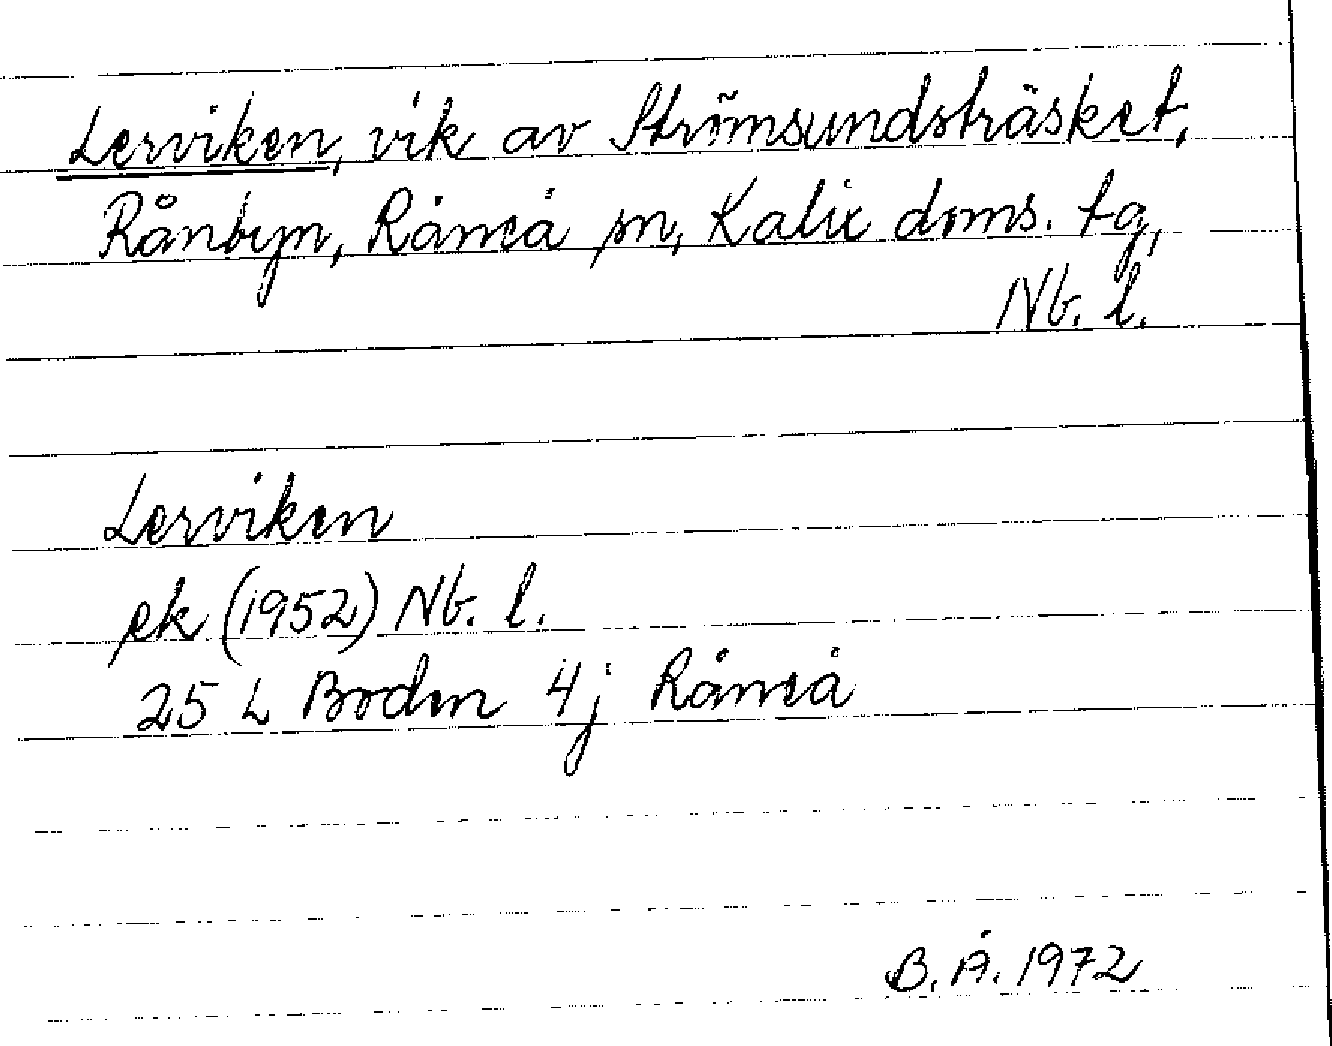 Lerviken, vik av Strömsundsträsket,
Rånbyn, Råneå sn, Kalix doms. tg,
Nb. l.
Lerviken
ek (1952) Nb. l.
25 L Boden 4j Råneå
B. Å. 1972